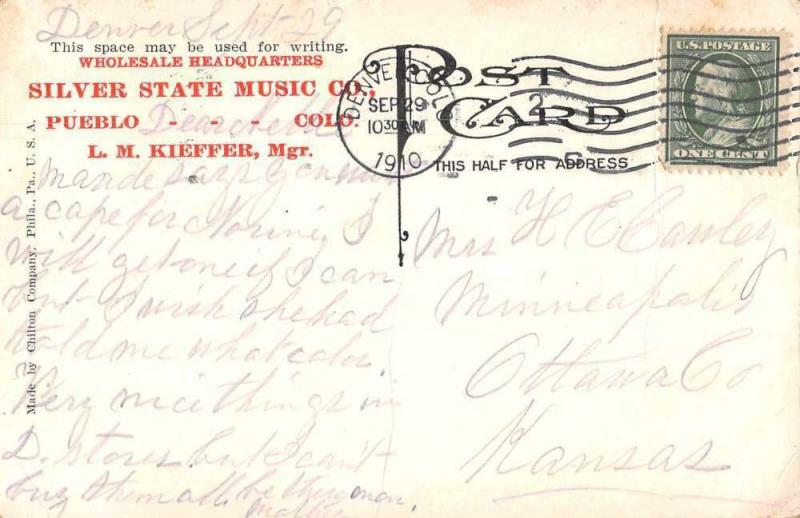 Denver Sept 29
This space may be used for writing.
WHOLESALE HEADQUARTERS
SILVER STATE MUSIC CO.,
PUEBLO - - - COLO.
L. M. KIEFFER, Mgr.
Dear child
Maude says you
a cape for I
will get one if I can
but I wish she had
told me what color.
Very nice things in
D. stores but I can't
buy them all. be there mon.
Made by Chilton Company, Phila., Pa., U. S. A.
POST CARD
THIS HALF FOR ADDRESS
DENVER, COLO.
SEP 29
10 30 AM
1910
2
U.S. POSTAGE
ONE CENT
Mrs H E Cawley
Minneapolis
Ottawa Co
Kansas